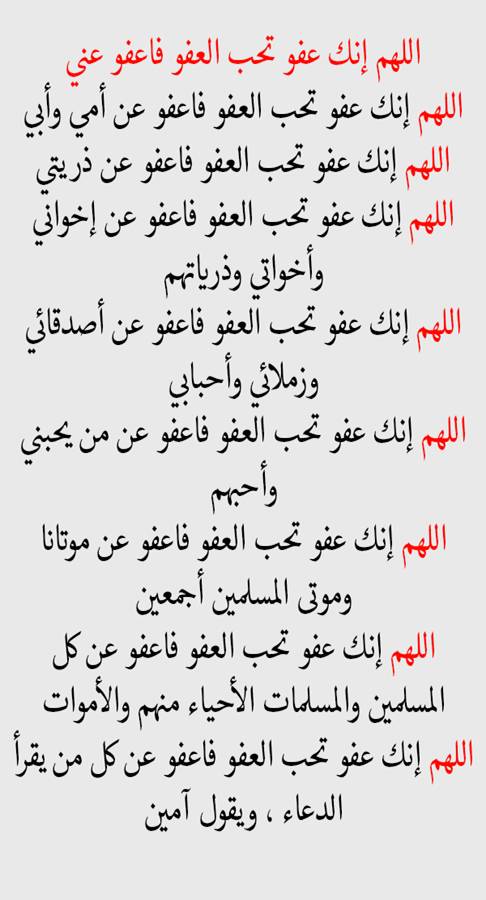 اللهم إنك عفو تحب العفو فاعفو عني
اللهم إنك عفو تحب العفو فاعفو عن أمي وأبي
اللهم إنك عفو تحب العفو فاعفو عن ذريتي
اللهم إنك عفو تحب العفو فاعفو عن إخواني
وأخواتي وذرياتهم
اللهم إنك عفو تحب العفو فاعفو عن أصدقائي
وزملائي وأحبابي
اللهم إنك عفو تحب العفو فاعفو عن من يحبني
وأحبهم
اللهم إنك عفو تحب العفو فاعفو عن موتانا
وموتى المسلمين أجمعين
اللهم إنك عفو تحب العفو فاعفو عن كل
المسلمين والمسلمات الأحياء منهم والأموات
اللهم إنك عفو تحب العفو فاعفو عن كل من يقرأ
الدعاء ، ويقول آمين